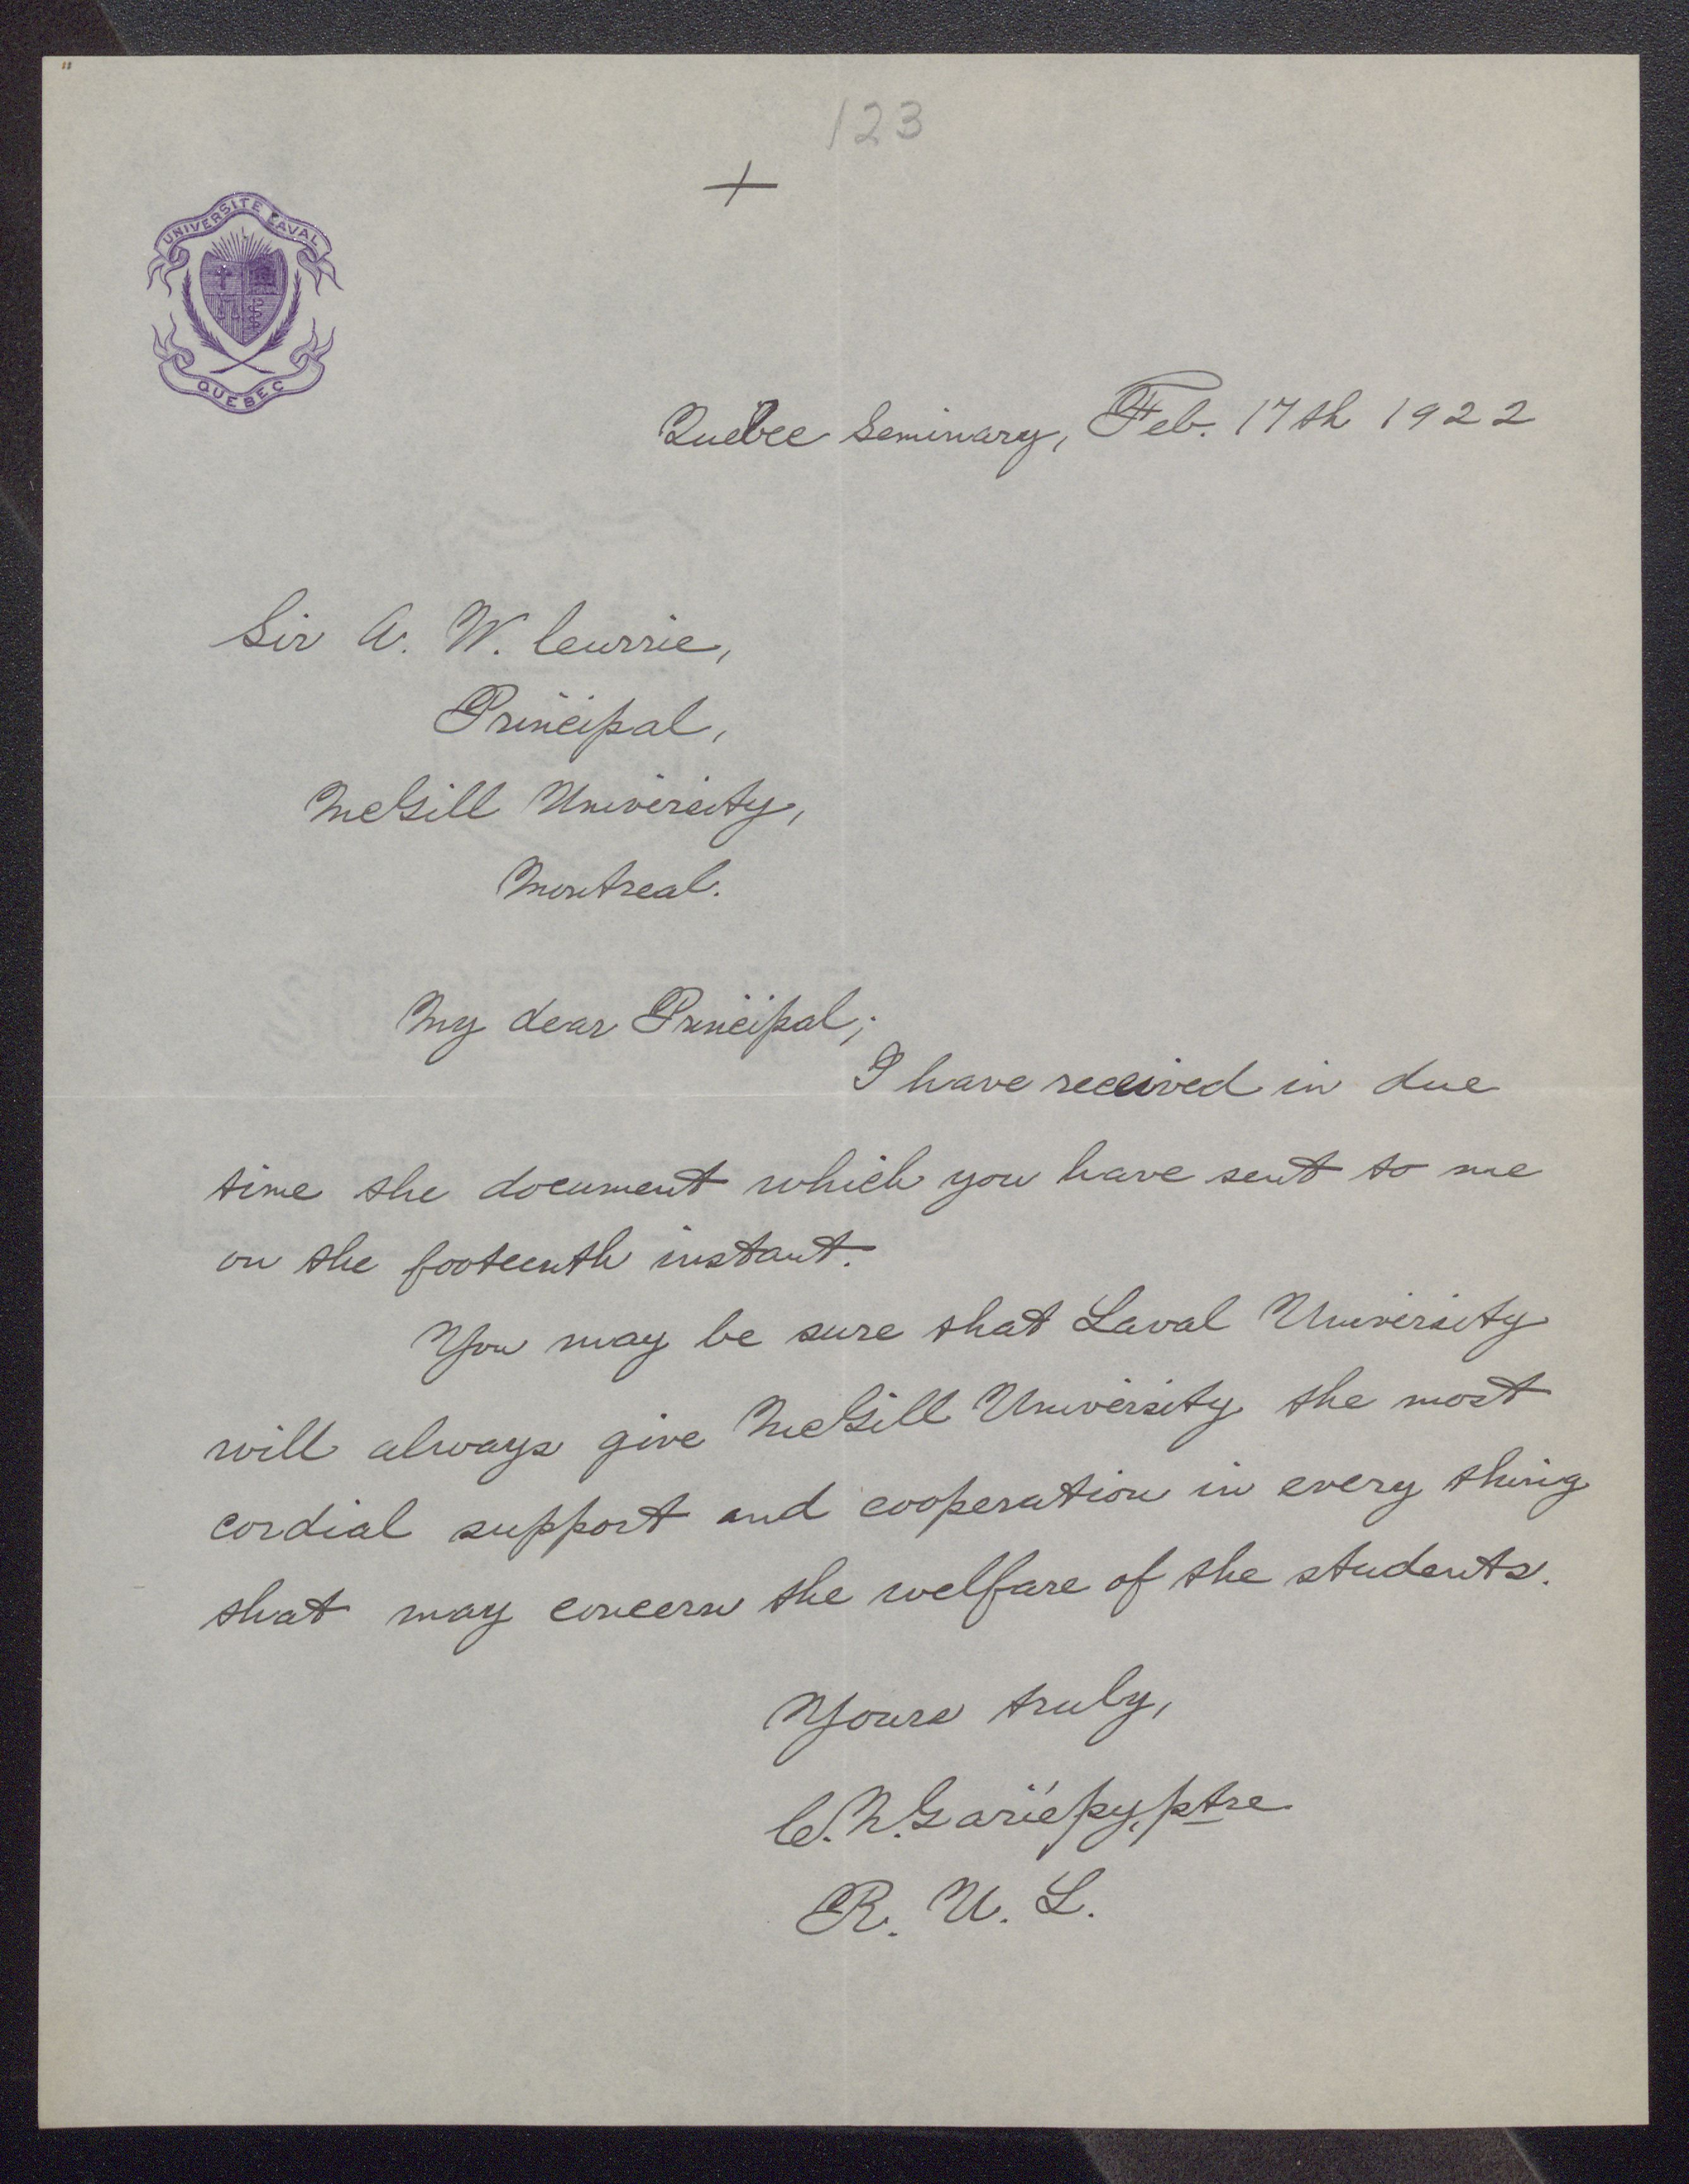 123
+
UNIVERSITE LAVAL
QUEBEC
Quebec Seminary, Feb. 17th 1922
Sir A. W. Currie,
Principal,
McGill University,
Montreal.
My dear Principal;
I have received in due
time the document which you have sent to me
on the footeenth instant.
You may be sure that Laval University
will always give McGill University the most
cordial support and cooperation in every thing
that may concern the welfare of the students.
Yours truly,
C. N. Gariépy, ptre
R. U. L.